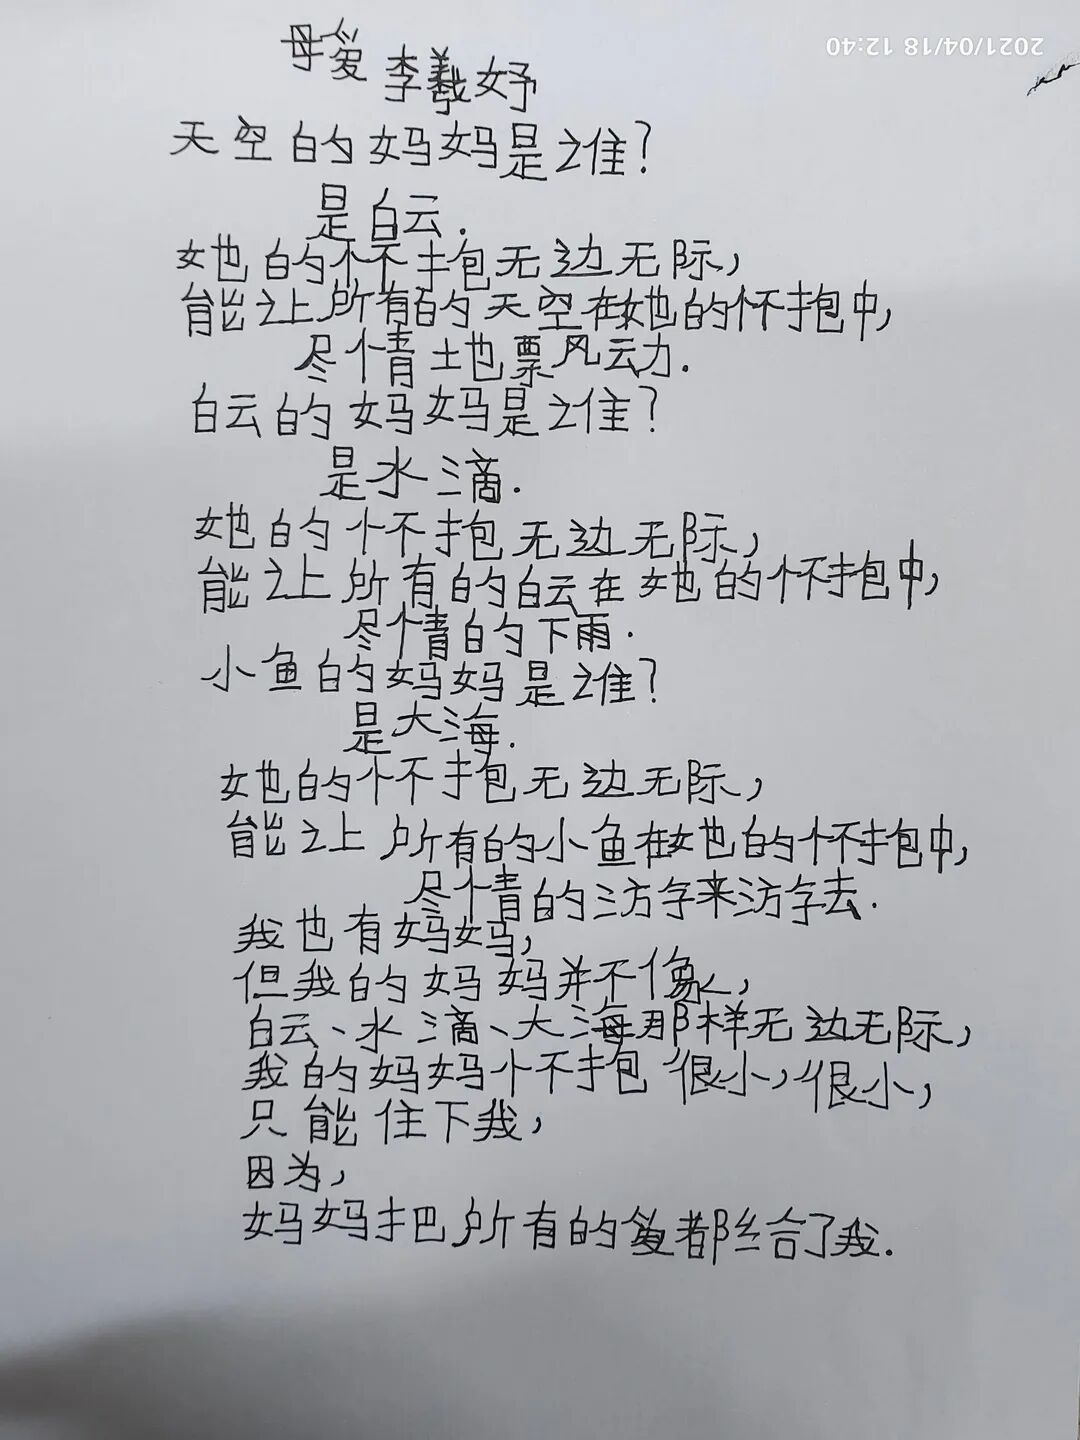 2021/04/18 12:40
母爱 李羲妤
天空的妈妈是谁？
是白云.
她的怀抱无边无际，
能让所有的天空在她的怀抱中，
尽情地飘风云力.
白云的妈妈是谁？
是水滴.
她的怀抱无边无际，
能让所有的白云在她的怀抱中，
尽情的下雨.
小鱼的妈妈是谁？
是大海.
她的怀抱无边无际，
能让所有的小鱼在她的怀抱中，
尽情的游来游去.
我也有妈妈，
但我的妈妈并不像，
白云、水滴、大海那样无边无际，
我的妈妈怀抱很小，很小，
只能住下我，
因为，
妈妈把所有的爱都给了我.